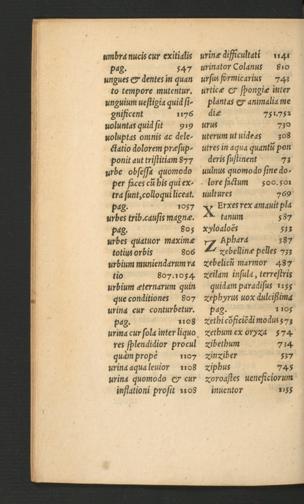 umbra nucis cur exitialis
pag. 547
ungues & dentes in quan
to tempore mutentur.
unguium uestigia quid si-
gnificent 1176
uoluntas quid sit 919
uoluptas omnis ac dele-
ctatio dolorem præsup-
ponit aut tristitiam 877
urbe obsessa quomodo
per fices cū his qui ex-
tra sunt, colloqui liceat.
pag. 1057
urbes trib. causis magnæ.
pag. 805
urbes quatuor maximæ
totius orbis 806
urbium muniendarum ra
tio 807.1054
urbium æternarum quin
que conditiones 807
urina cur conturbetur.
pag. 1108
urina cur sola inter liquo
res splendidior procul
quàm propè 1107
urina aqua leuior 1108
urina quomodo & cur
inflationi prosit 1108
urinæ difficultati 1141
urinator Colanus 810
ursus formicarius 741
urticæ & spongiæ inter
plantas & animalia me
diæ 751.752
urus 730
uterum ut uideas 308
utres in aqua quantū pon
deris sustinent 73
uulnus quomodo sine do-
lore factum 500.501
uultures 769
XErxes rex amauit pla
tanum 587
xyloaloës 533
ZAphara 387
zebellinæ pelles 733
zebelicū marmor 487
zeilam insula, terrestris
quidam paradisus 1155
zephyrus uox dulcissima
pag. 1105
zethi cōficiēdi modus 573
zethum ex oryza 574
zibethum 714
zinziber 537
ziphus 745
zoroastes ueneficiorum
inuentor 1155